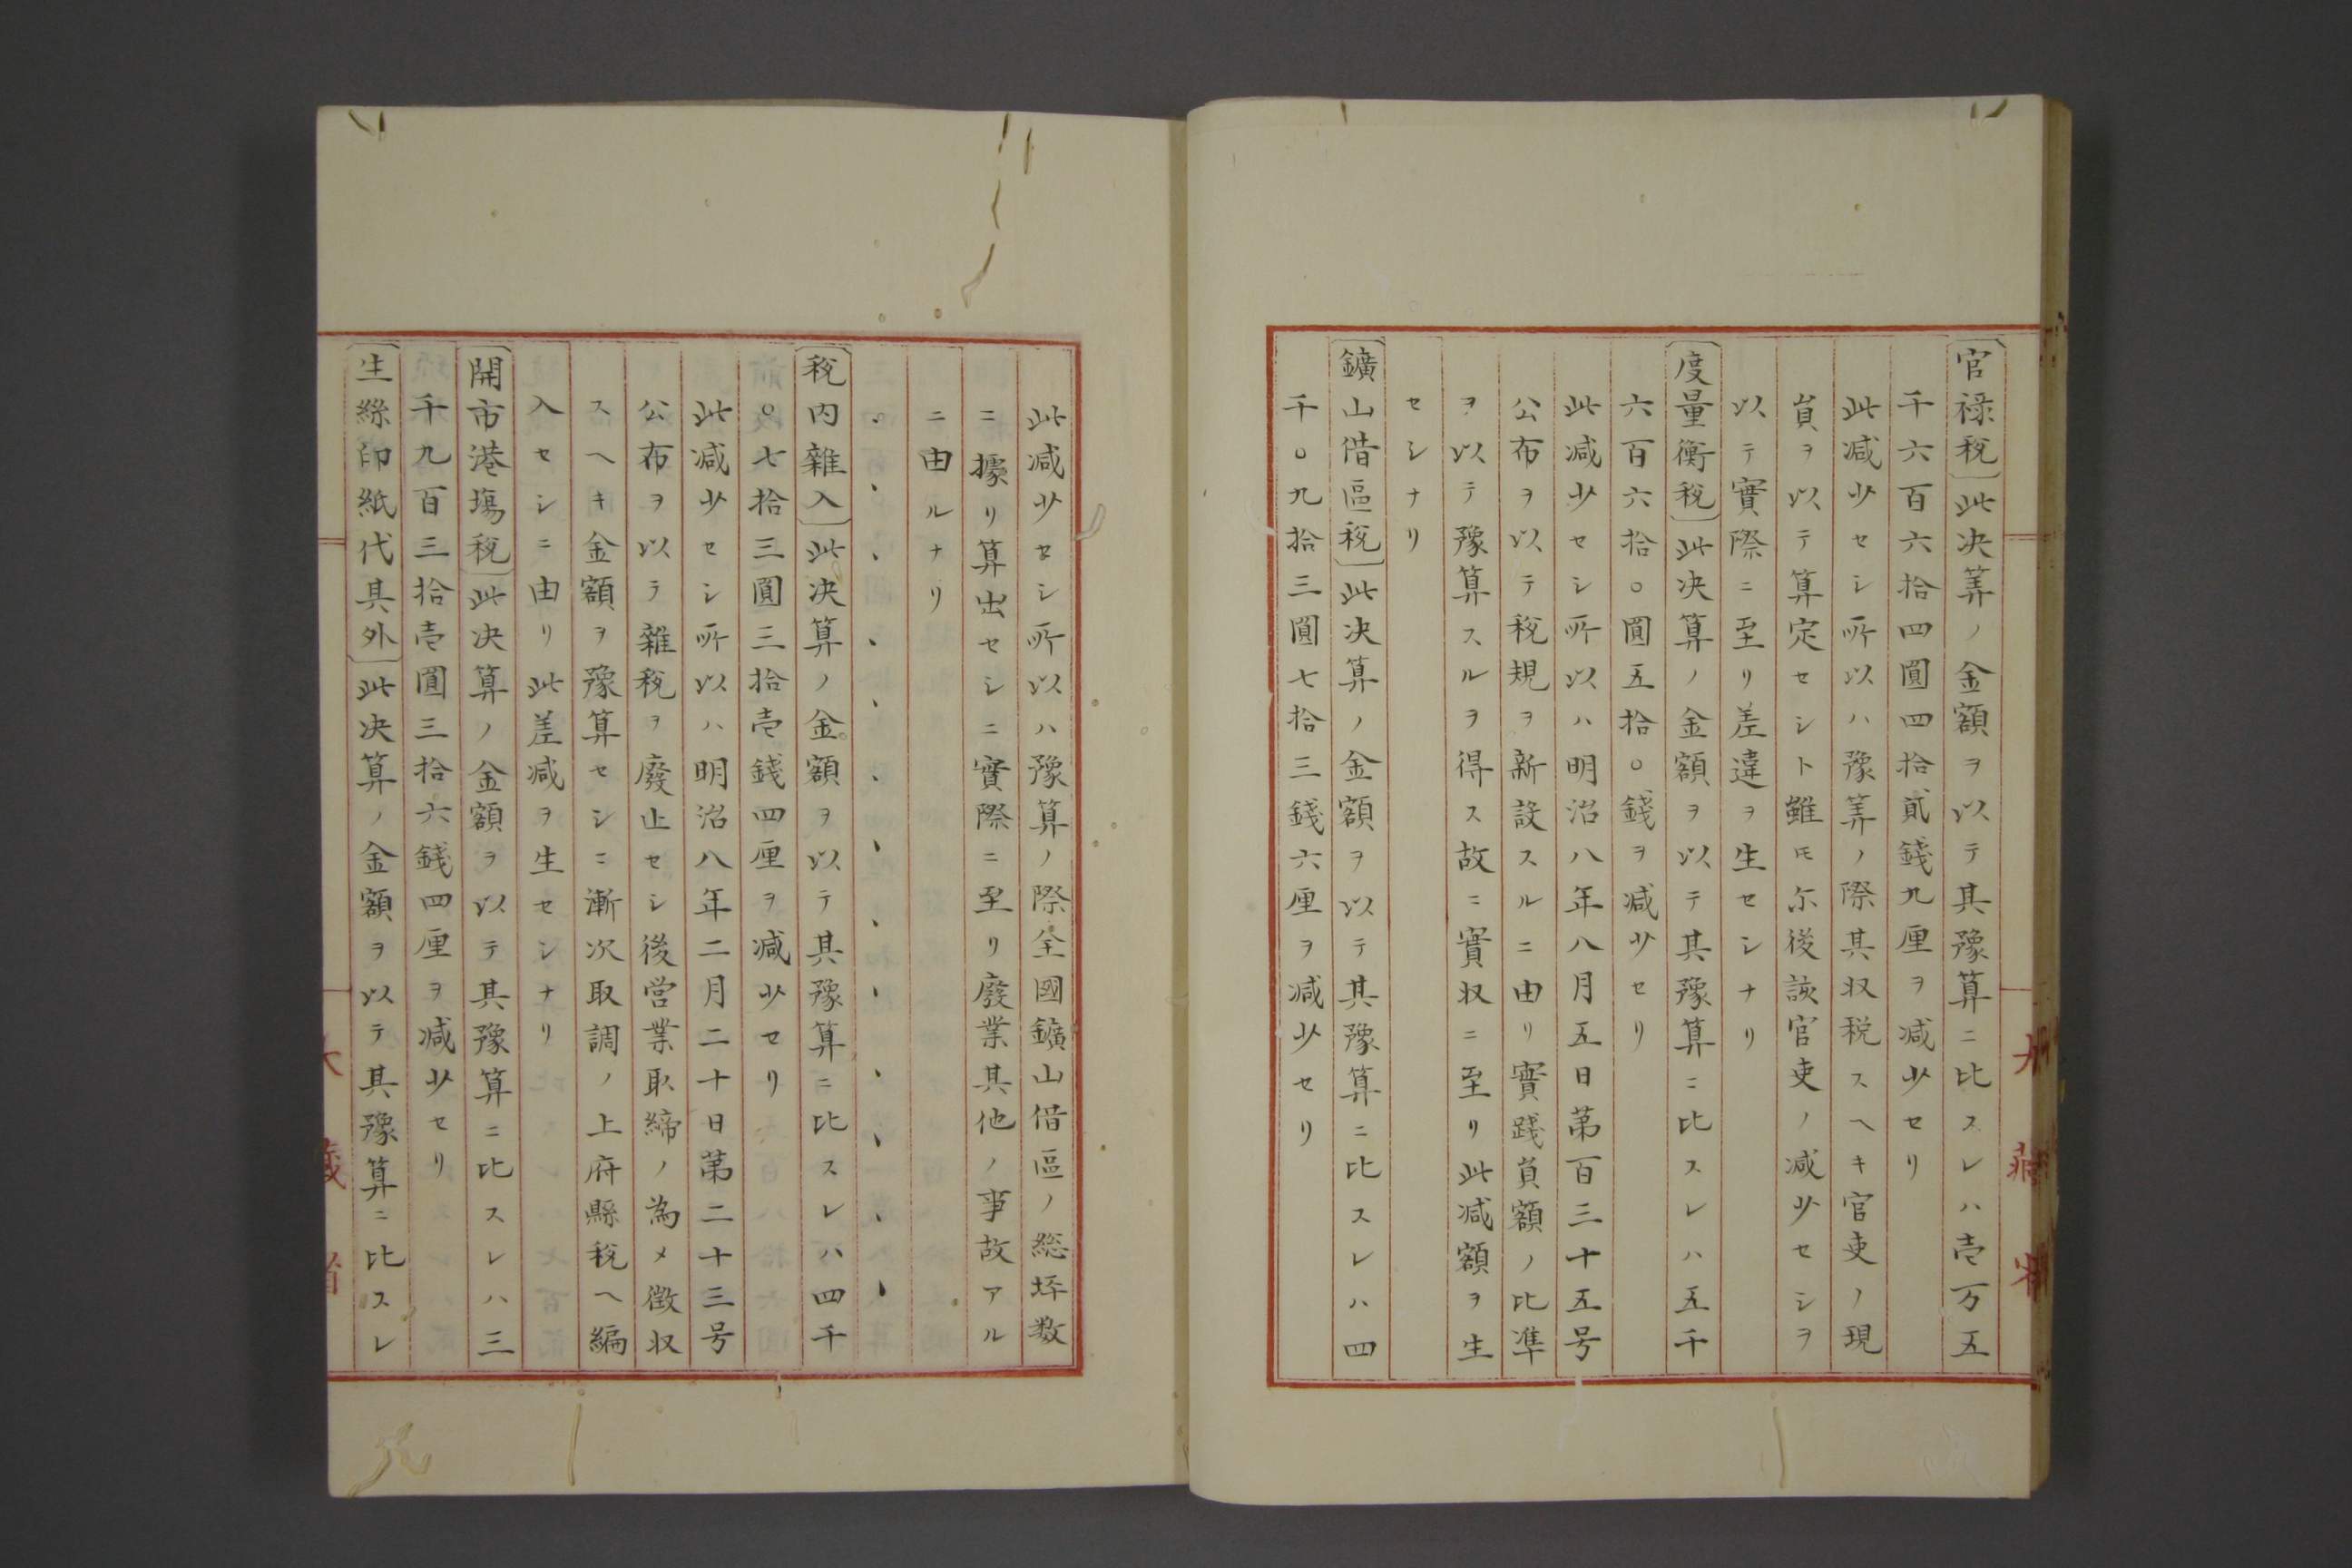 官禄税此决筭ノ金額ヲ以テ其豫算ニ比スレハ壱万五
千六百六拾四圓四拾貳錢九厘ヲ減少セリ
此減少セシ所以ハ豫筭ノ際其収税スヘキ官吏ノ現
員ヲ以テ算定セシト雖モ尓後該官吏ノ減少セシヲ
以テ實際ニ至リ差違ヲ生セシナリ
度量衡税此决算ノ金額ヲ以テ其豫算ニ比スレハ五千
六百六拾〇圓五拾〇錢ヲ減少セリ
此減少セシ所以ハ明治八年八月五日第百三十五号
公布ヲ以テ税規ヲ新設スルニ由リ實踐員額ノ比準
ヲ以テ豫算スルヲ得ス故ニ實収ニ至リ此減額ヲ生
セシナリ
鑛山借區税此决算ノ金額ヲ以テ其豫算ニ比スレハ四
千〇九拾三圓七拾三錢六厘ヲ減少セリ
大藏省
此減少セシ所以ハ豫算ノ際全國鑛山借區ノ総坪数
ニ據リ算出セシニ實際ニ至リ廢業其他ノ事故アル
ニ由ルナリ
税内雜入此决算ノ金額ヲ以テ其豫算ニ比スレハ四千
〇七拾三圓三拾壱錢四厘ヲ減少セリ
此減少セシ所以ハ明治八年二月二十日第二十三号
公布ヲ以テ雜税ヲ廢止セシ後営業取締ノ為メ徴収
スヘキ金額ヲ豫算セシニ漸次取調ノ上府縣税ヘ編
入セシニ由リ此差減ヲ生セシナリ
開市港塲税此决算ノ金額ヲ以テ其豫算ニ比スレハ三
千九百三拾壱圓三拾六錢四厘ヲ減少セリ
生絲印紙代其外此决算ノ金額ヲ以テ其豫算ニ比スレ
大藏省